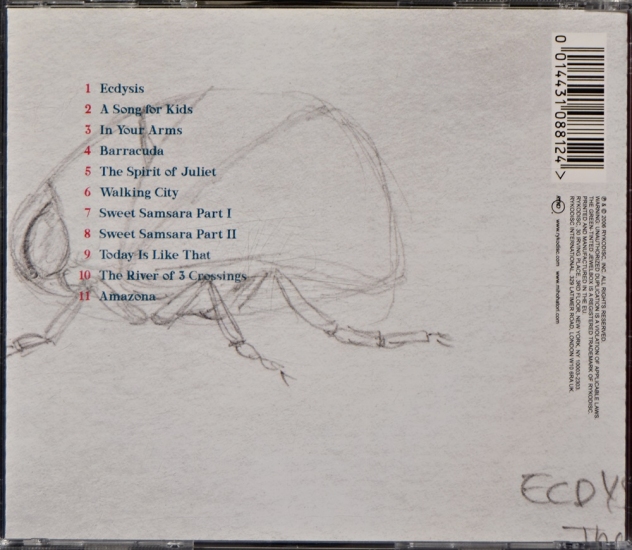 1 Ecdysis
2 A Song for Kids
3 In Your Arms
4 Barracuda
5 The Spirit of Juliet
6 Walking City
7 Sweet Samsara Part I
8 Sweet Samsara Part II
9 Today Is Like That
10 The River of 3 Crossings
11 Amazona
0 014431 088124 >
℗ & © 2006 RYKODISC, INC. ALL RIGHTS RESERVED.
WARNING: UNAUTHORIZED DUPLICATION IS A VIOLATION OF APPLICABLE LAWS.
THE GREEN-TINTED JEWELBOX IS A REGISTERED TRADEMARK OF RYKODISC.
PRINTED AND MANUFACTURED IN THE EU
RYKODISC, 30 IRVING PLACE, 3RD FLOOR, NEW YORK, NY 10003-2303.
RYKODISC INTERNATIONAL, 329 LATIMER ROAD, LONDON W10 6RA UK.
www.rykodisc.com www.mihohatori.com
ECDYS